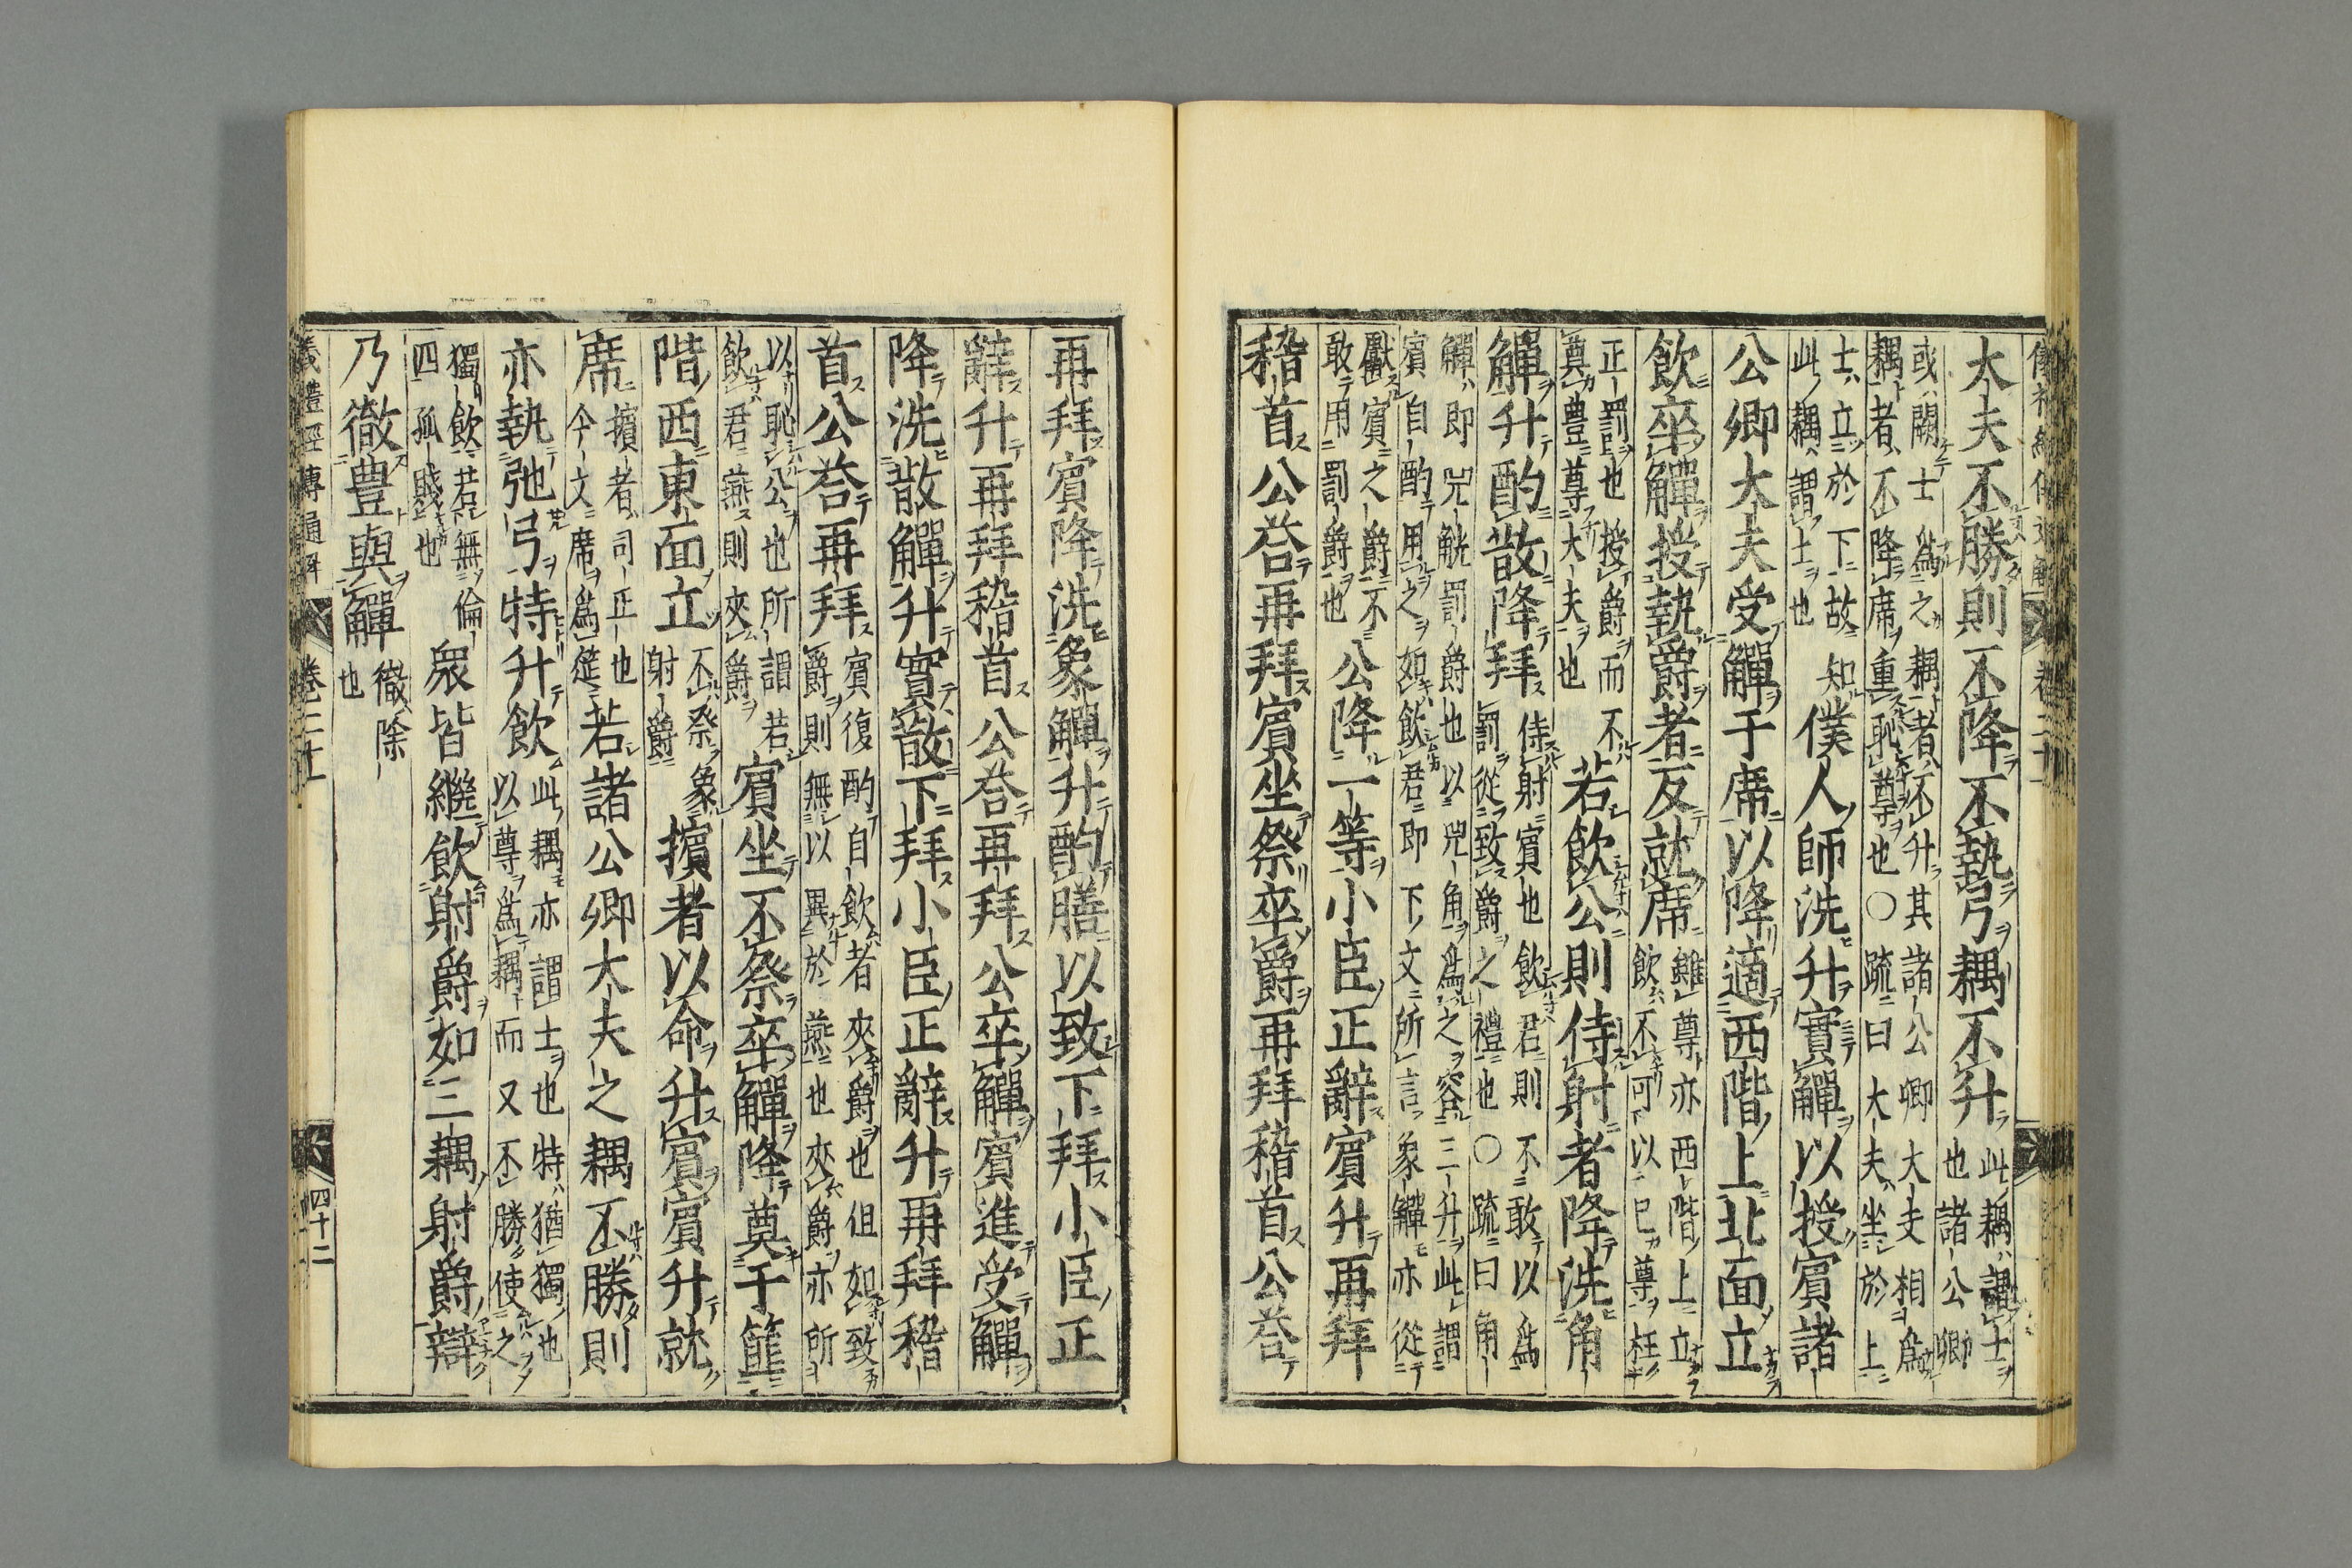 大夫不勝則不降不執弓耦不升
此耦謂士
也諸公卿
或闕士爲之耦者不升其諸公卿大夫相爲
耦者不降席重恥尊也○疏曰大夫坐於上
士立於下故知
此耦謂士也
僕人師洗升實觶以授賓諸
公卿大夫受觶于席以降適西階上北面立
飲卒觶授執爵者反就席
雖尊亦西階上立
飲不可以已尊枉
正罰也授爵而不
奠豊尊大夫也
若飲公則侍射者降洗角
觶升酌散降拜
侍射賓也飲君則不敢以爲
罰從致爵之禮也○疏曰角
觶即兕觥罰爵也以兕角爲之容三升此謂
賓自酌用之如飲君即下文所言象觶亦從
獻賓之爵不
敢用罰爵也
公降一等小臣正辭賓升再拜
稽首公荅再拜賓坐祭卒爵再拜稽首公荅
再拜賓降洗象觶升酌膳以致下拜小臣正
辭升再拜稽首公荅再拜公卒觶賓進受觶
降洗散觶升實散下拜小臣正辭升再拜稽
首公荅再拜
賓復酌自飲者夾爵也但如致
爵則無以異於燕也夾爵亦所
以恥公也所謂若
飲君燕則夾爵
賓坐不祭卒觶降奠于篚
階西東面立
不祭象
射爵
擯者以命升賓賓升就
席
擯者司正也
今文席爲筵
若諸公卿大夫之耦不勝則
亦執弛弓特升飲
此耦亦謂士也特猶獨也
以尊爲耦而又不勝使之
獨飲若無倫
四孤賤也
衆皆繼飲射爵如三耦射爵辯
乃徹豊與觶
徹除
也
儀禮經傳通解 卷二十 四十二